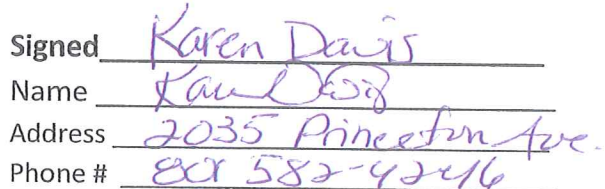 Signed Karen Davis
Name Karen Davis
Address 2035 Princeton Ave.
Phone # 801 582-4246